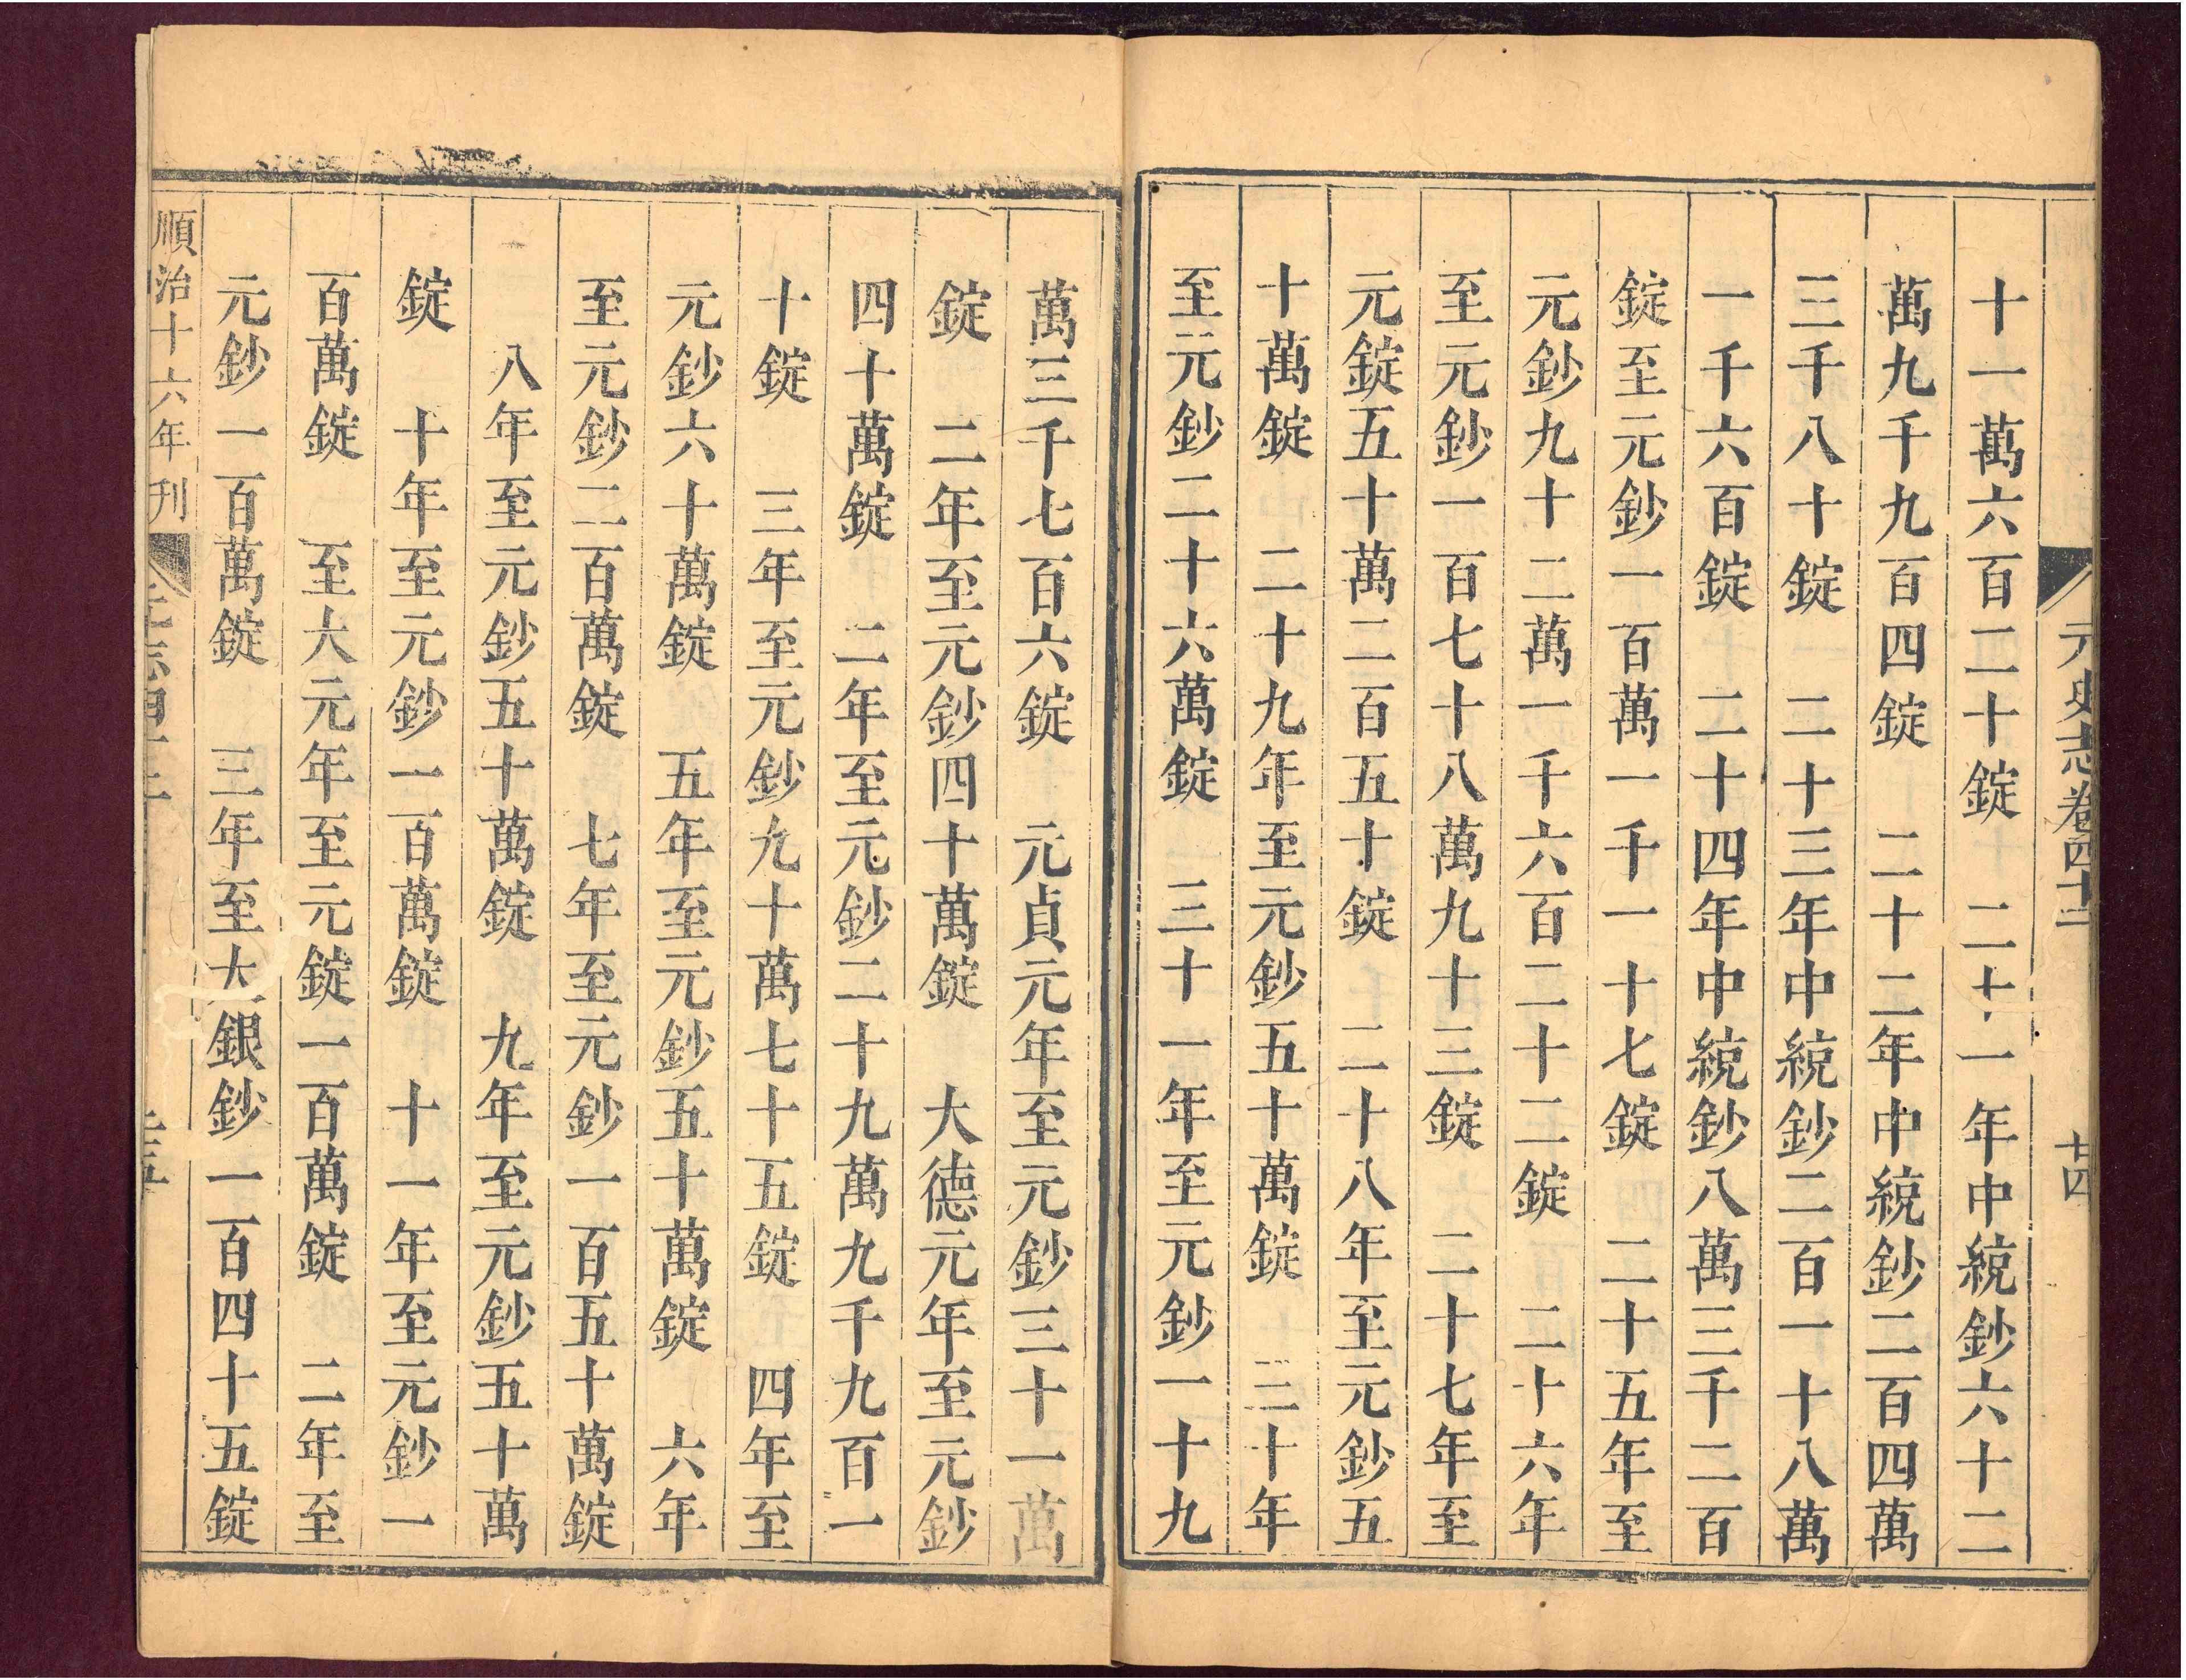 元史志卷四十二 廿四
十一萬六百二十錠 二十一年中統鈔六十二
萬九千九百四錠 二十二年中統鈔二百四萬
三千八十錠 二十三年中統鈔二百一十八萬
一千六百錠 二十四年中統鈔八萬三千二百
錠至元鈔一百萬一千一十七錠 二十五年至
元鈔九十二萬一千六百二十二錠 二十六年
至元鈔一百七十八萬九十三錠 二十七年至
元錠五十萬二百五十錠 二十八年至元鈔五
十萬錠 二十九年至元鈔五十萬錠 三十年
至元鈔二十六萬錠 三十一年至元鈔一十九
萬三千七百六錠 元貞元年至元鈔三十一萬
錠 二年至元鈔四十萬錠 大德元年至元鈔
四十萬錠 二年至元鈔二十九萬九千九百一
十錠 三年至元鈔九十萬七十五錠 四年至
元鈔六十萬錠 五年至元鈔五十萬錠 六年
至元鈔二百萬錠 七年至元鈔一百五十萬錠
八年至元鈔五十萬錠 九年至元鈔五十萬
錠 十年至元鈔一百萬錠 十一年至元鈔一
百萬錠 至大元年至元錠一百萬錠 二年至
元鈔一百萬錠 三年至大銀鈔一百四十五錠
順治十六年刊